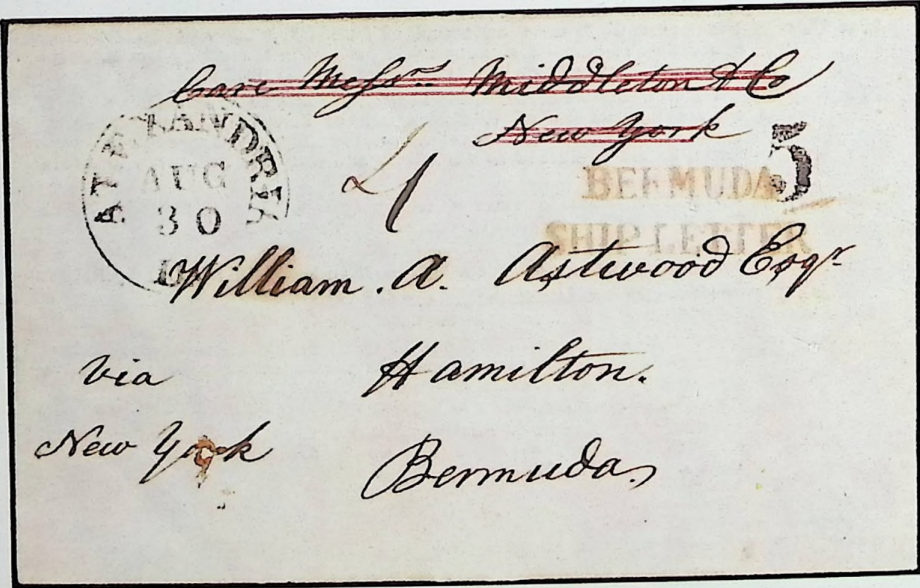 Care Messrs. Middleton & Co
New York
ALEXANDRIA
AUG
30
D.C.
4
5
BERMUDA
SHIP LETTER
William . A. Astwood Esqr
Hamilton.
Bermuda
via
New York